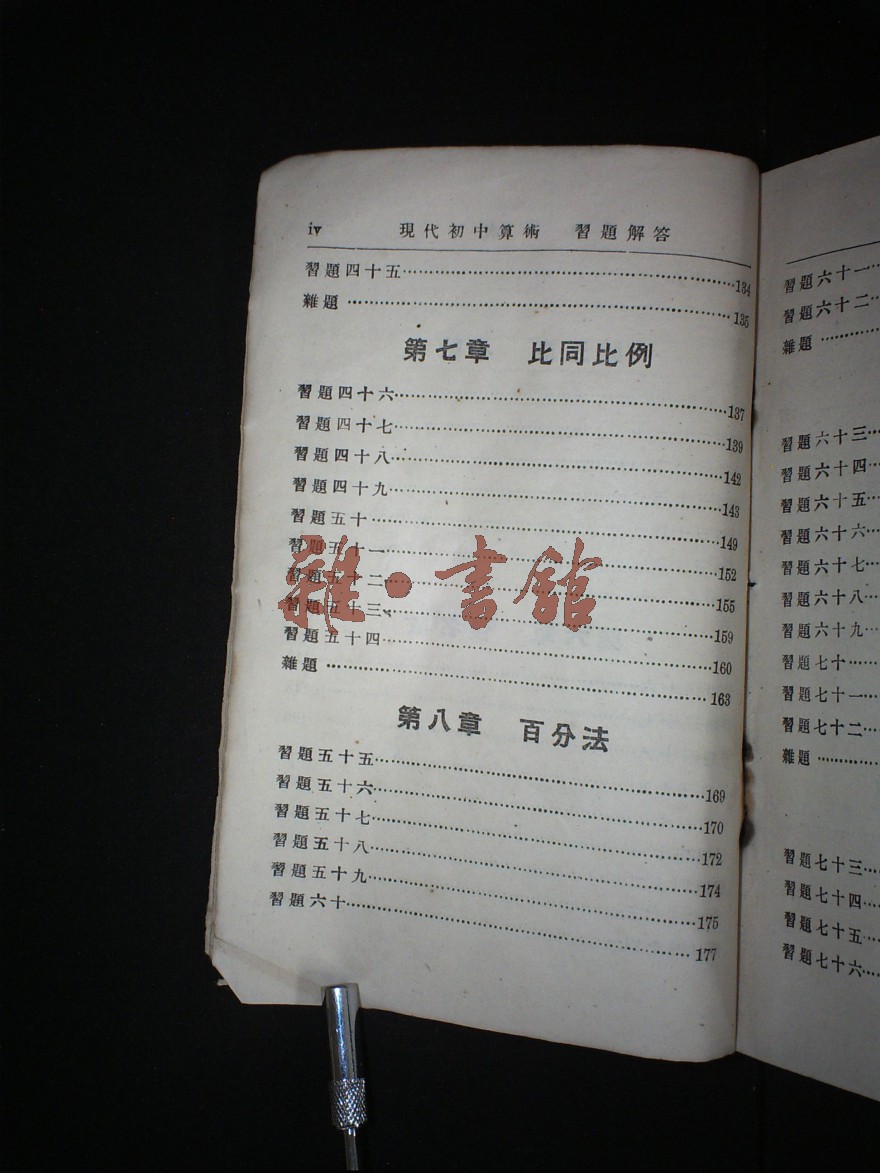 iv 現代初中算術 習題解答
習題四十五……134
雜題……135
第七章 比同比例
習題四十六……137
習題四十七……139
習題四十八……142
習題四十九……143
習題五十……149
習題五十一……152
習題五十二……155
習題五十三……159
習題五十四……160
雜題……163
第八章 百分法
習題五十五……169
習題五十六……170
習題五十七……172
習題五十八……174
習題五十九……175
習題六十……177
雜·書館
習題六十一……
習題六十二……
雜題……
習題六十三……
習題六十四……
習題六十五……
習題六十六……
習題六十七……
習題六十八……
習題六十九……
習題七十……
習題七十一……
習題七十二……
雜題……
習題七十三……
習題七十四……
習題七十五……
習題七十六……